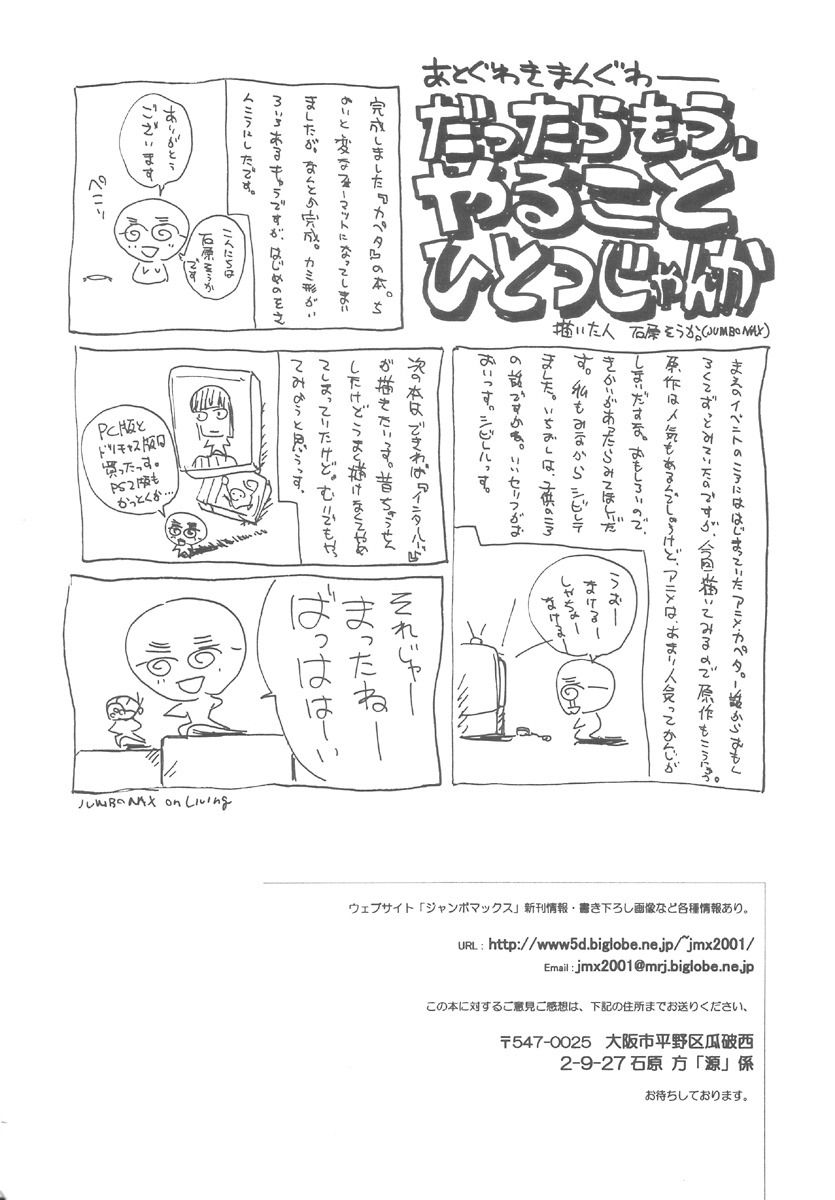 あとぐわきまんぐわー
だったらもう、
やること
ひとつじゃんか
描いた人 石原そうか。(JUMBOMAX)
完成しました『カペタ』の本。ち
ょいと変なフォーマットになってしまい
ましたが。なんとか完成。カミ形がい
ろいろあるキャラですが、はじめのモさ
んこうにしたです。
こんにちは
石原そうか
です
ありがとう
ございます
ペこー
まえのイベントのころにははじまっていたアニメ・カペタ。一話からおもし
ろくてずっとみていたのですが、今回描いてみるので原作もこうにゅう。
原作は人気もあるんでしょうけど、アニメは、あまり人気ってかんじが
しまいだすな。おもしろいので、
きかいがあったらみてほしいだ
す。私もみながらシビレテ
ました。いちおしは、子供のころ
の話ですかね。いいセリフがお
おいっす。シビレルっす。
うおー
まけるー
しゃちょー
なけるー
次の本は、できれば『イニタルド』
が描きたいっす。昔ちょうせん
したけどうまく描けなくてやめ
てしまっていたけど。むりでもやっ
てみようと思うっす。
PC版と
ドリキャス版は
買ったっす。
PS2版も
かっとくか…
それじゃー
まったねー
ばっははーい
JUMBOMAX on Living
ウェブサイト「ジャンボマックス」新刊情報・書き下ろし画像など各種情報あり。
URL : http://www5d.biglobe.ne.jp/~jmx2001/
Email : jmx2001@mrj.biglobe.ne.jp
この本に対するご意見ご感想は、下記の住所までお送りください、
〒547-0025 大阪市平野区瓜破西
2-9-27 石原 方「源」係
お待ちしております。